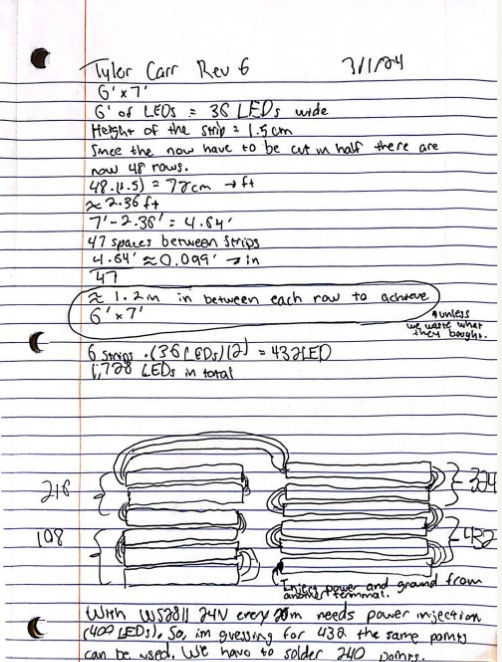 Tylor Carr Rev 6 3/1/24
6' x 7'
6' of LEDs = 36 LEDs wide
Height of the strip = 1.5cm
Since the now have to be cut in half there are
now 48 rows.
48.(1.5) = 72cm → ft
≈ 2.36 ft
7' - 2.36' = 4.64'
47 spaces between strips
4.64' ≈ 0.099' → in
47
≈ 1.2in in between each row to achieve
6' x 7'
*unless
we waste what
they bought.
6 strips .(36 LEDs)(2) = 432 LED
1,728 LEDs in total
216
324
108
432
Inject power and ground from
another terminal.
With WS2811 24V every 20m needs power injection
(400 LEDs). So, im guessing for 432 the same points
can be used. We have to solder 240 points.